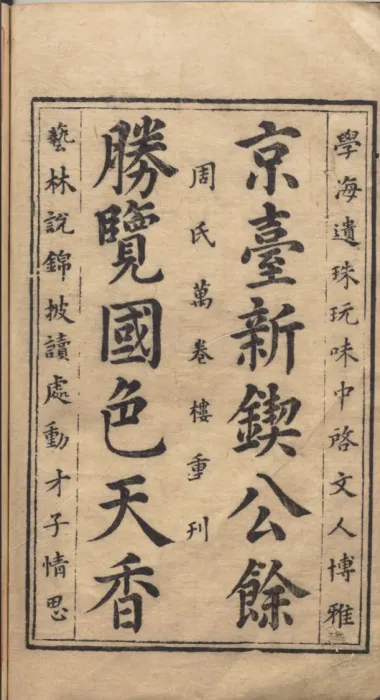 學海遺珠玩味中啓文人博雅
京臺新鍥公餘
周氏萬卷樓重刊
勝覽國色天香
藝林說錦披讀處動才子情思